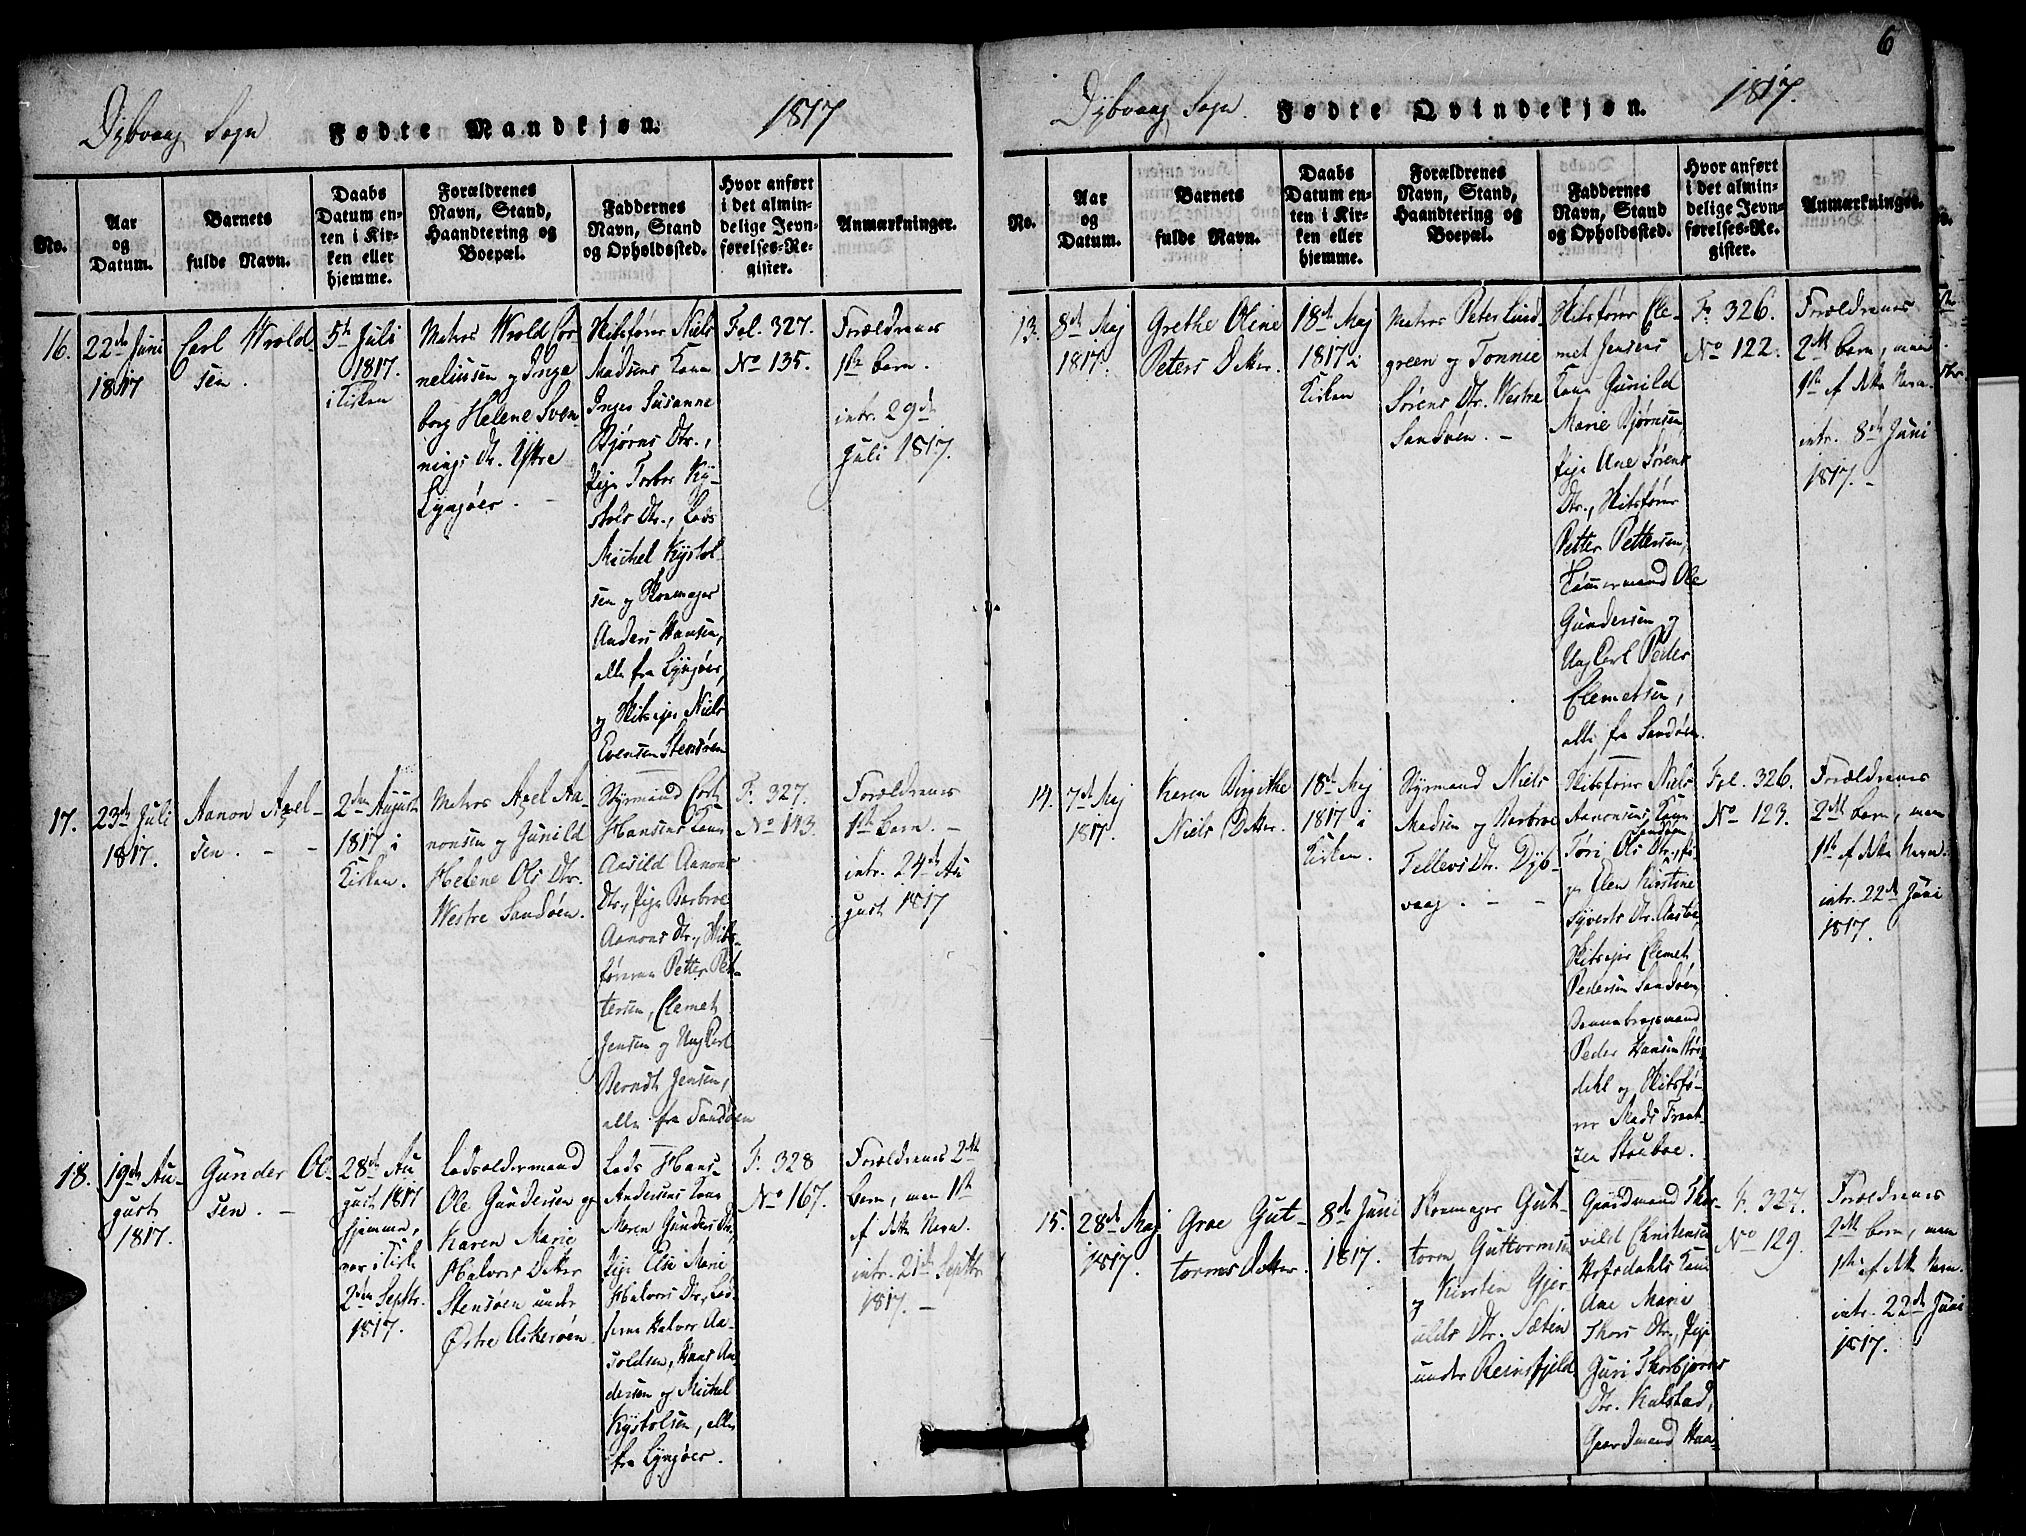 Dybvaag Sogn
Fødte Mandkjøn.
1817
No.
Aar
og
Datum.
Barnets
fulde Navn.
Daabs
Datum en-
ten i Kir-
ken eller
hjemme.
Forældrenes
Navn, Stand,
Haandtering og
Boepæl.
Faddernes
Navn, Stand
og Opholdssted.
Hvor anført
i det almin-
delige Jevn-
førelses-Re-
gister.
Anmærkninger.
16.
22de Juni
1817
Carl Wrold-
sen.
5te Juli
1817.
i Kirken
Matros Wrold Cor-
neliussen og Inge
borg Helene Sven-
nings Dr. Ystre
Lyngøer. -
Skibsfører Niels
Madsens Kone
Inger Susanne
Bjørns Dtr.,
Pige Torbor Ky-
stols Dtr., Lods
Michel Kystol
sen og Skomager
Anders Hansen,
alle fra Lyngøer,
og Skibsejer Niels
Evensen Stensøen
Fol. 327.
No 135.
Forældrenes
1ste barn.
intr. 29de
Juli 1817.
17.
23de Juli
1817.
Aanon Axel-
sen. - -
2den August
1817 i
Kirken.
Matros Axel Aa-
nonsen og Gunild
Helene Ols Dtr.
Westre Sandøen.
Styrmand Cort
Hansens Kone
Aasild Aanons
Dtr., Pige Barbroe
Aanons Dtr., Skibs-
førerne Petter Pet-
tersen, Clemet
Jensen og Ung Carl
Berndt Jensen,
alle fra Sandøen
F. 327.
No 143.
Forældrenes
1ste barn. -
intr. 24de Au
gust 1817
18.
19de Au-
gust
1817.
Gunder Ol-
sen. -
28de Au
gust 1817
hjemme,
var i Kirk
2den Septbr.
1817.
Lodsoldermand
Ole Gundersen og
Karen Marie
Halvors Datter
Stensøen under
Østre Askerøen
Lods Hans
Andersens Kone
Maren Gunders Dr,
Pige Else Marie
Halvors Dr, Lod-
serne Halvor Aa-
soldsen, Hans An
dersen og Michel
Kystolsen, alle
fra Lyngøer.
F. 328
No 167.
Forældrenes 2det
barn, men 1ste
af dette Navn.
intr. 21de Septbr
1817. -
6
Dybvaag Sogn.
Fødte Qvindekjøn.
1817.
No.
Aar
og
Datum.
Barnets
fulde Navn.
Daabs
Datum en-
ten i Kir-
ken eller
hjemme.
Forældrenes
Navn, Stand,
Haandtering og
Boepæl.
Faddernes
Navn, Stand
og Opholdssted.
Hvor anført
i det almin-
delige Jevn-
førelses-Re-
gister.
Anmærkninger.
13.
8de Maj
1817.
Grethe Oline
Peters Datter.
18de Maj
1817 i
Kirken
Matros Peter Lind
green og Tonnie
Sørens Dtr. Westre
Sandøen. -
Skibsfører Cle-
met Jensens
Kone Gunild
Marie Bjørnsen,
Pige Ane Sørens
Dtr., Skibsfører
Petter Pettersen,
Tømmermand Ole
Gundersen og
Ung Carl Peder
Clemetsen,
alle fra Sandøen.
F. 326.
No 122.
Forældrenes
2det barn, men
1ste af dette Navn.
intr. 8de Juni
1817. -
14.
7de Maj
1817.
Karen Birgithe
Niels Datter.
18de Maj
1817 i
Kirken.
Styrmand Niels
Madsen og Barbroe
Tellevs Dtr. Dyb-
vaag. - -
Skibsfører Niels
Aanonsens Kone
Tøri Ols Dtr. Sandøen
og Elen Kirstine
Syverts Dtr.
Skibsejer Clemet
Pedersen Sandøen,
Dannebrogsmand
Peder Hansen
dahl og Skibsfø-
rer Mads Frant-
zen Staubøe.
Fol. 326.
No 123.
Forældrenes
2det barn, men
1ste af dette Navn.
intr. 22de Juni
1817.
15.
28de Maj
1817.
Groe Gut-
torms Datter.
8de Juni
1817.
Skomager Gut-
torm Guttormsen
og Kirsten Gjer
ulds Dtr. Sæten
under Reinsfjeld
Gaardmand Thor-
vild Christensen
Hofsdahls Kone
Ane Marie
Thors Dtr., Pige
Guri Thorbjørns
Dtr. Kalstad,
Gaardmand Haa-
F. 327.
No 129.
Forældrenes
2det barn, men
1ste af dette Navn.
intr. 22de Juni
1817.